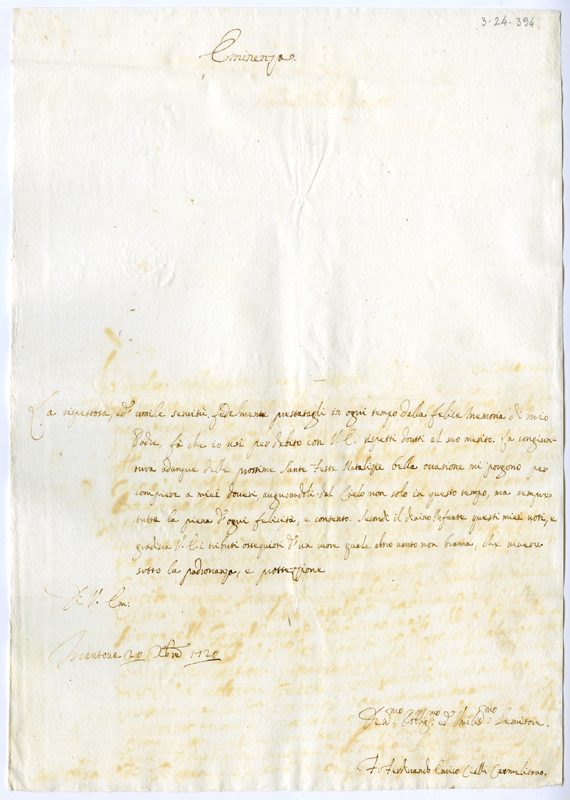 3-24-394
Eminenza.
La rispettosa, ed umile servitù, fedelmente prestatagli in ogni tempo dalla felice Memoria di mio
Padre, fà che io usi per debito con V. E. rispetti douti al suo merito. La congiun-
tura adunque delle prossime Sante Feste Natalizie bella occasione mi porgono per
compiere a miei doveri, augurandole dal Cielo non solo in questo tempo, ma sempre
tutta la piena d'ogni felicità, e contento. Secondi il Divino Infante questi miei voti, e
gradisca V. E. i tributi ossequiosi d'un cuore quale altro vanto non brama, che vivere
sotto la padronanza, e prottezzione
Di V. Em.
Mantova 20 Xbre 1720
Devmo Obligmo ed Umilmo Servitore.
F. Ferdinando Enrico Carmelitano.